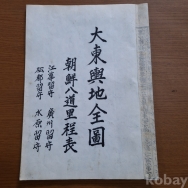 大東輿地全圖
朝鮮八道里程表
江華留守 廣州留守
開城留守 水原留守
Kobay